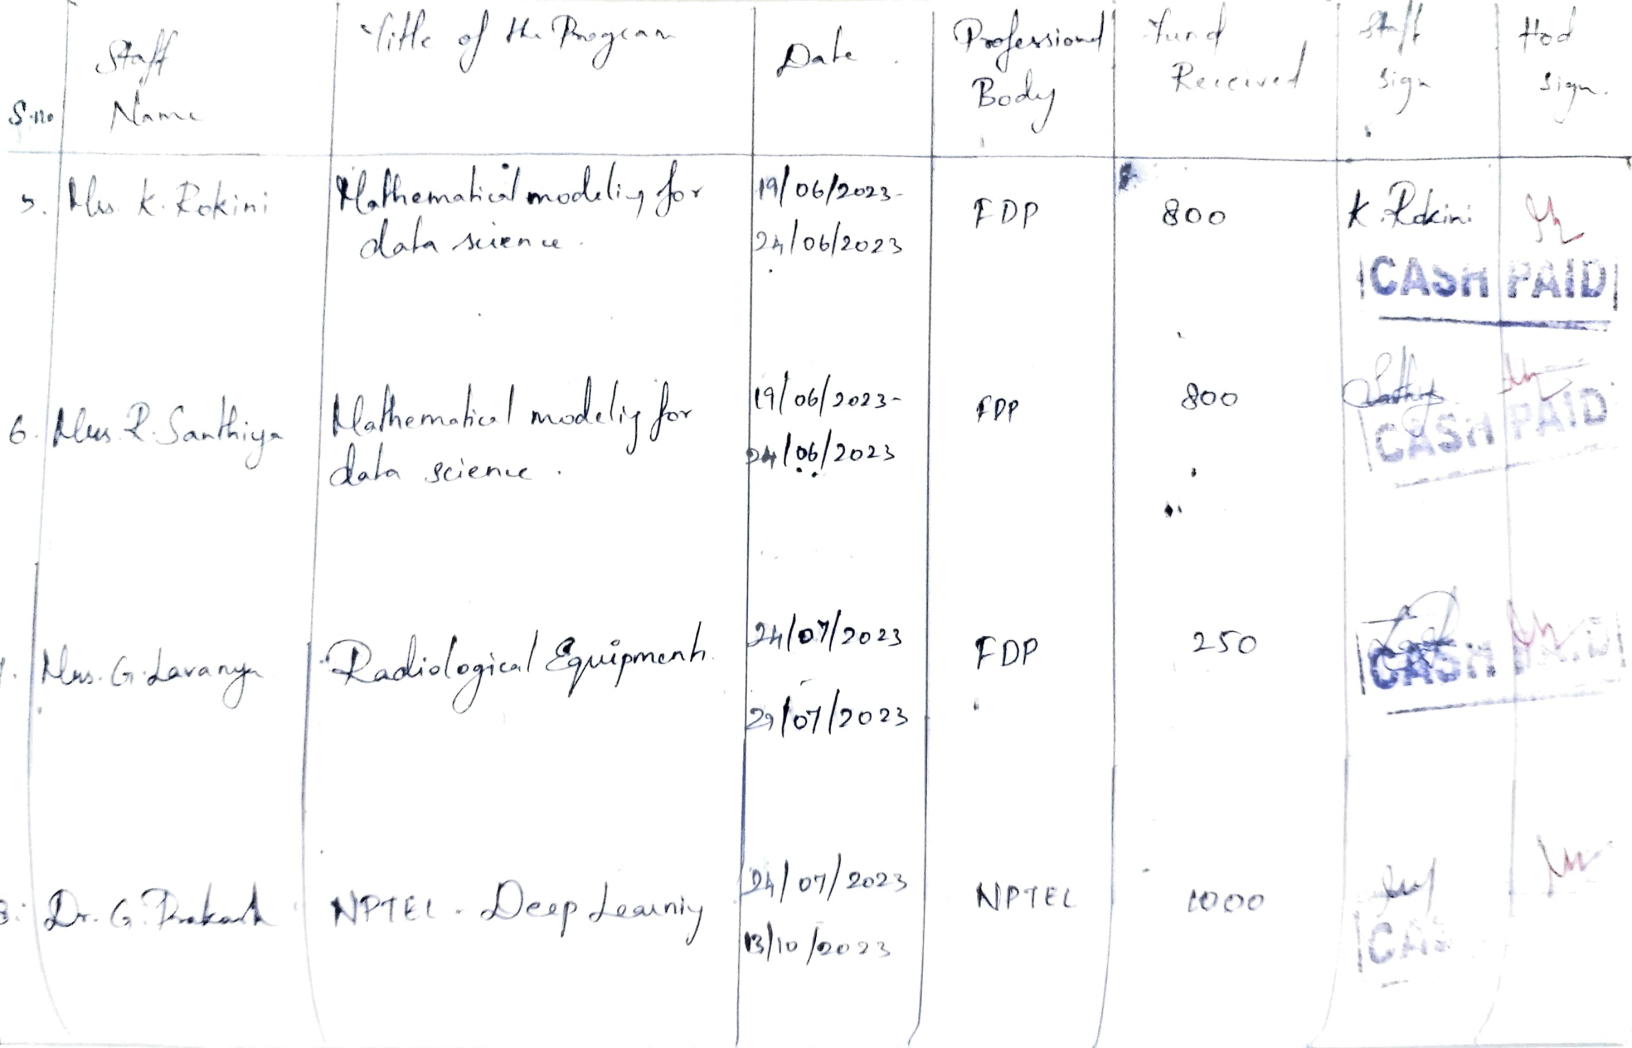 S.no
Staff
Name
Title of the Program
Date
Professional
Body
Fund
Received
Staff
sign
Hod
sign.
5.
Mrs. K. Rokini
Mathematical modeling for
data science.
19/06/2023-
24/06/2023
FDP
800
K. Rokini
CASH PAID
6.
Mrs. R. Santhiya
Mathematical modelig for
data science.
19/06/2023-
24/06/2023
FDP
800
CASH PAID
Mrs. G. Lavanya
Radiological Equipment.
24/07/2023
29/07/2023
FDP
250
CASH PAID
8.
Dr. G. Prakash
NPTEL - Deep Learning
24/07/2023
13/10/2023
NPTEL
1000
CAS